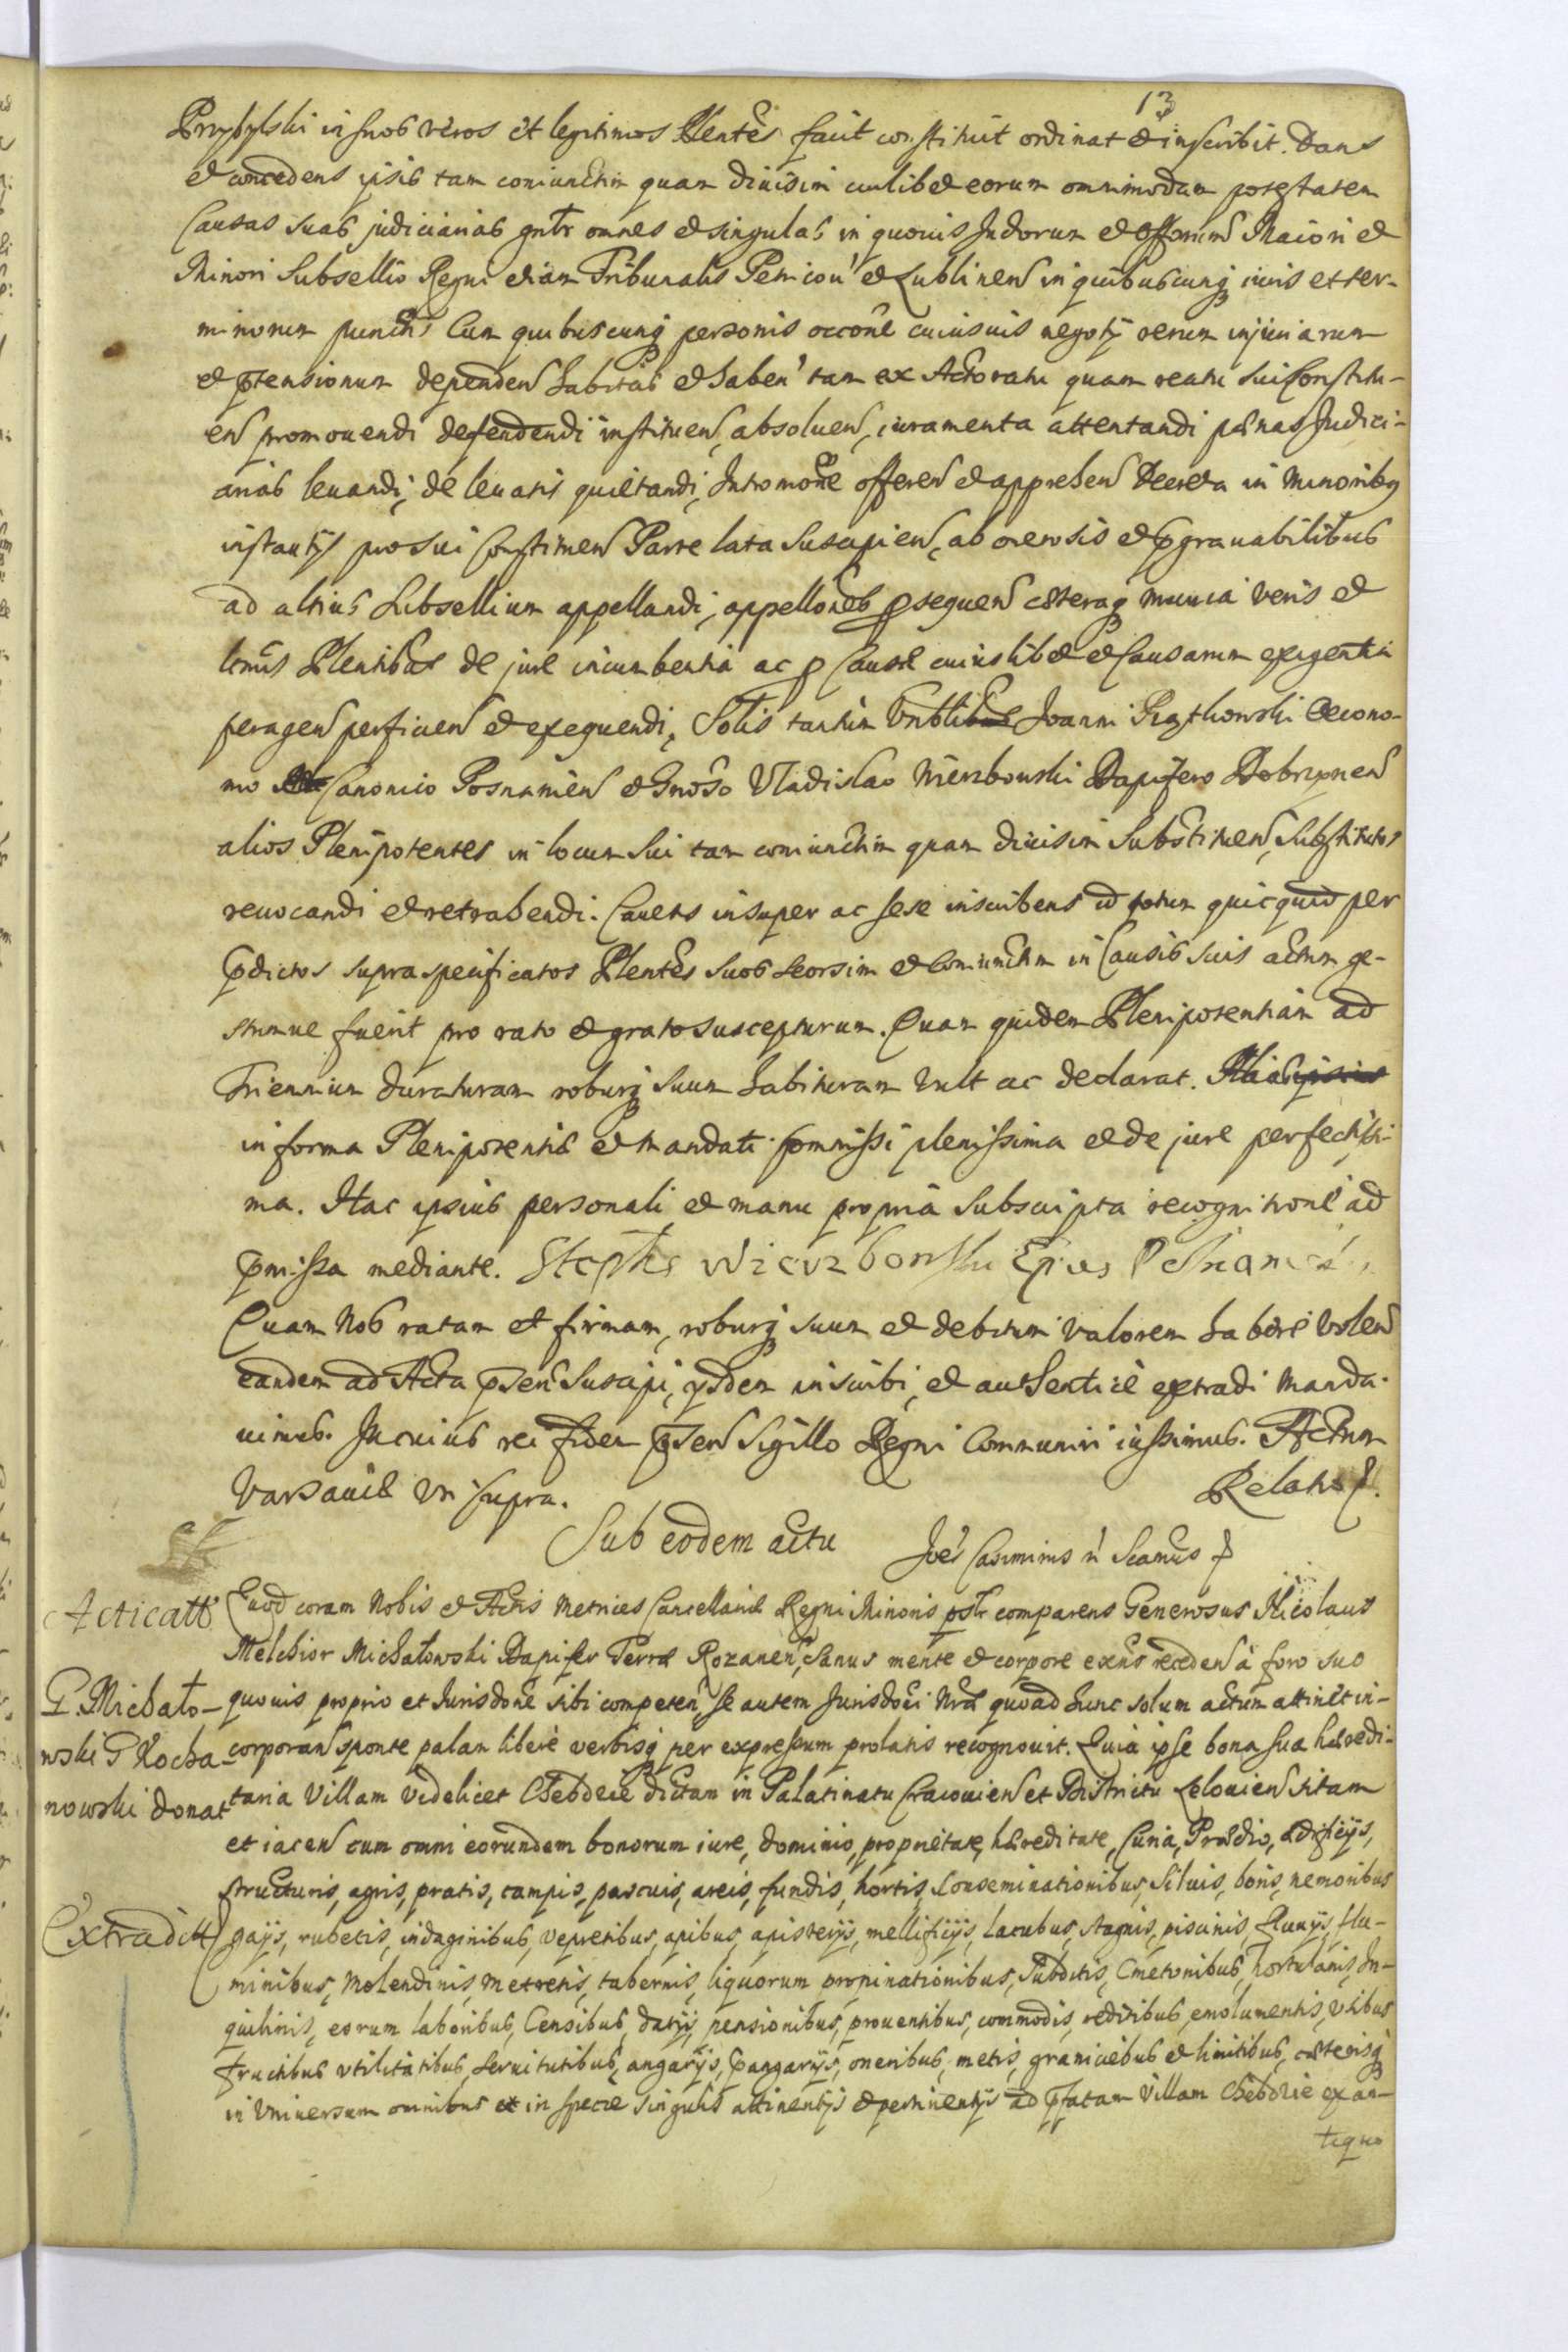 13
Przybylski in suos veros et legitimos Plentes facit constituit ordinat et inscribit. Dans
et concedens ipsis tam coniunctim quam divisim cuilibet eorum omnimodam potestatem
Causas suas judiciarias gnlr omnes et singulas in quovis Judiorum et Offiorum Maiori et
Minori Subsellio Regni etiam Tribunalis Petricou et Lublinen in quibuscunq iuris et ter-
minorum punctis Cum quibuscunq personis occone cuiusuis negotij rerum injuriarum
et ptensionum dependen habitas et haben tam ex Actoratu quam reatu sui Constitu-
en promouendi defendendi instituen, absoluen, iuramenta attentandi pœnas Judici-
arias leuandi, de leuatis quietandi, Intromone offeren et apprehen Decreta in Minoribq
instantijs pro sui Constituen Parte lata Suscipien, ab onerosis et pgrauabilibus
ad altius Subsellium appellandi, appellones pseguen cæteraq munia veris et
ltmis Plentibus de jure incumbentia ac p Causæ cuiuslibet et Causarum exigentia
peragen perficien et exequendi, Solis tantum Vnblibus Joanni Oecono-
mo Canonico Posnanien et Gnoso Vladislao Wierzbowski Dapifero Dobrzynen
alios Plenipotentes in locum sui tam coniunctim quam divisim Substituen, Substitutos
reuocandi et retrahendi. Cauens insuper ac sese inscribens id totum quicquid per
pdictos supra specificatos Plentes suos seorsim et coniunctim in Causis suis actum ge-
stumue fuerit pro rato et grato suscepturum. Quam quidem Plenipotentiam ad
Triennium duraturam roburq suum habituram vult ac declarat.
in forma Plenipotentiæ et Mandati Commissi plenissima et de jure perfectissi-
ma. Hac ipsius personali et manu propria Subscripta recognitione ad
pmissa mediante. Stephs Wierzbowski Epus Posnanien
Quam Nos ratam et firmam, roburq suum et debitum valorem habere volen
eandem ad Acta psen Suscipi, ijsdem inscribi, et authentice extradi manda-
uimus. In cuius rei fidem psen Sigillo Regni Communiri iussimus. Actum
Varsaviæ vt supra.
Relatio
Sub eodem actu
Joes Casimirus
Acticatt
G. Michato-
wski G Kocha
nowski donat
Extraditt
Quod coram Nobis et Actis Metrices Cancellariæ Regni Minoris psolr comparens Generosus Nicolaus
Melchior Michałowski Dapifer Terræ Rozanen, Sanus mente et corpore exns receden à foro suo
quouis proprio et Jurisdone sibi competen, se autem Jurisdoni Nræ quoad hunc solum actum attinet in-
corporan sponte palam libere verbisq per expressum prolatis recognouit. Quia ipse bona sua hæredi-
taria Villam videlicet Chebdzie dictam in Palatinatu Cracouien et Districtu Lelouien sitam
et iacen cum omni eorundem bonorum iure, dominio, proprietate, hæreditate, Curia, Prædio, ædificijs,
structuris, agris, pratis, campis, pascuis, areis, fundis, hortis, Conseminationibus, Siluis, boris, nemoribus
gajis, rubetis, indaginibus, vepretibus, apibus, apisterijs, mellificijs, Lacubus, stagnis, piscinis, fluuijs, flu-
minibus, Molendinis, Metretis, tabernis, liquorum propinationibus, Subditis, Cmetonibus, hortulanis, In-
quilinis, eorum laboribus, Censibus, datijs, pensionibus, prouentibus, commodis, reditibus, emolumentis, vsibus
fructibus vtilitatibus, seruitutibus, angarijs, pangarijs, oneribus, metis, graniciebus et limitibus, cæterisq
in vniuersum omnibus et in specie singulis attinentijs et pertinentijs ad pfatam Villam Chebdzie ex an-
tiquo